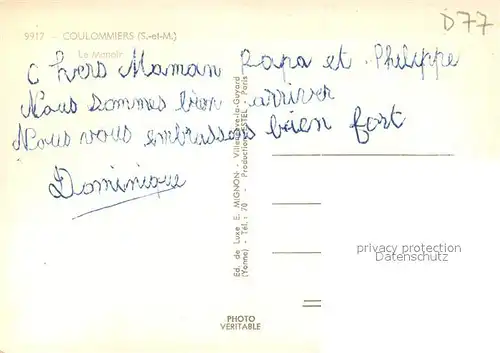 D77
9917 - COULOMMIERS (S.-et-M.)
Le Manoir
Chers Maman Papa et Philippe
Nous sommes bien arriver
Nous vous embrassons bien fort
Dominique
Ed. de Luxe E. MIGNON - Villeneuve-la-Guyard
(Yonne) - Tél.: 70 - Production ESTEL - Paris
privacy protection
Datenschutz
PHOTO
VÉRITABLE